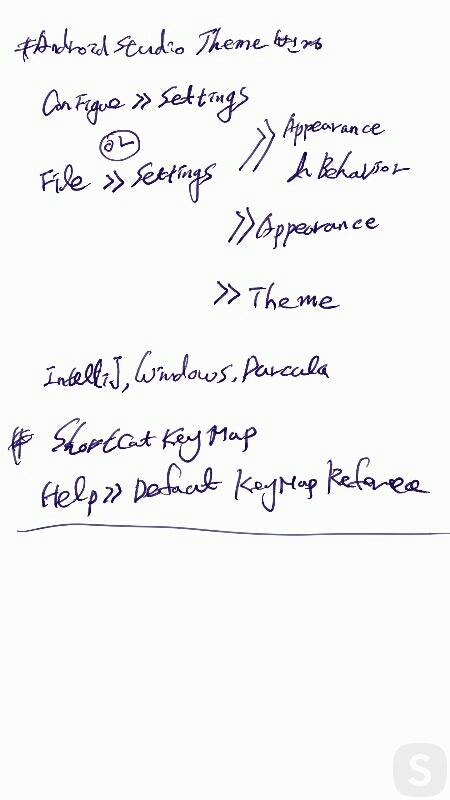 #Android Studio Theme 변경
Configue >> Settings
or
>> Appearance
& Behavior
File >> Settings
>> Appearance
>> Theme
IntelliJ, Windows, Darcula
# Shortcat Key Map
Help >> Default KeyMap Reference
S